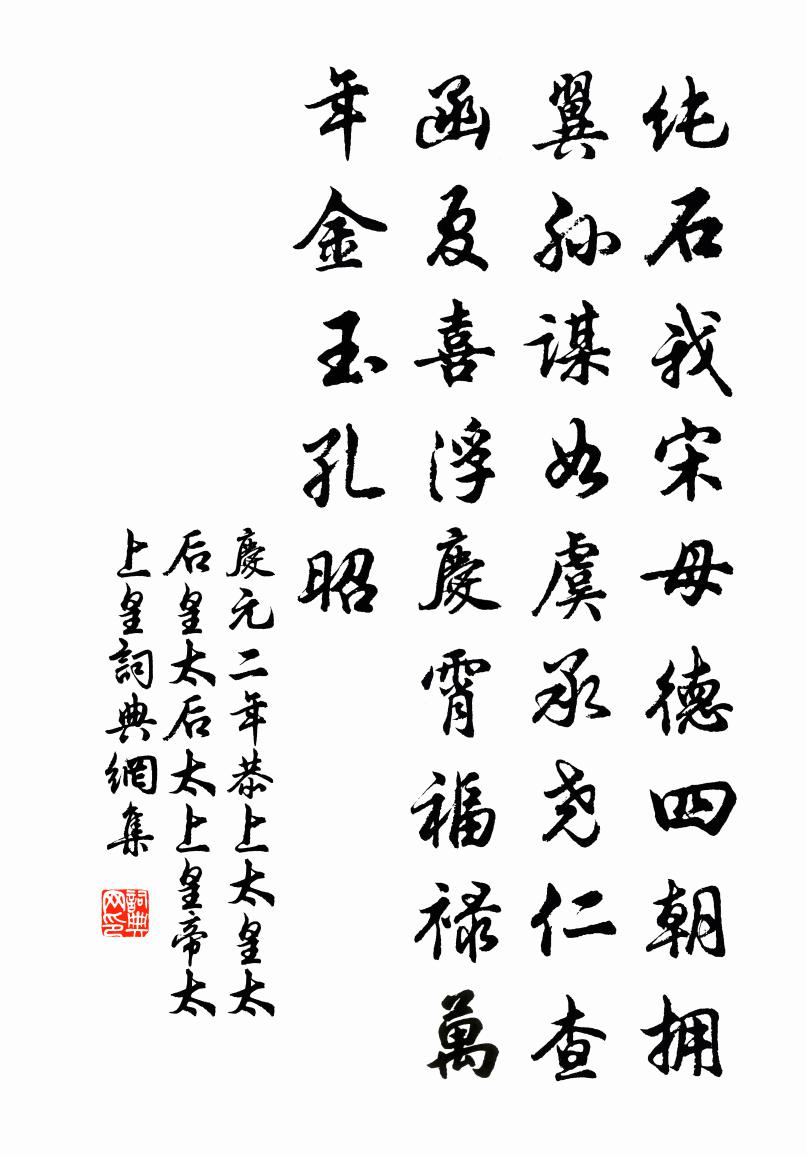 纯石我宋母德四朝拥
翼孙谋如虞承尧仁查
函夏喜浮慶霄福禄萬
年金玉孔昭
慶元二年恭上太皇太
后皇太后太上皇帝太
上皇詞典網集
詞典网印